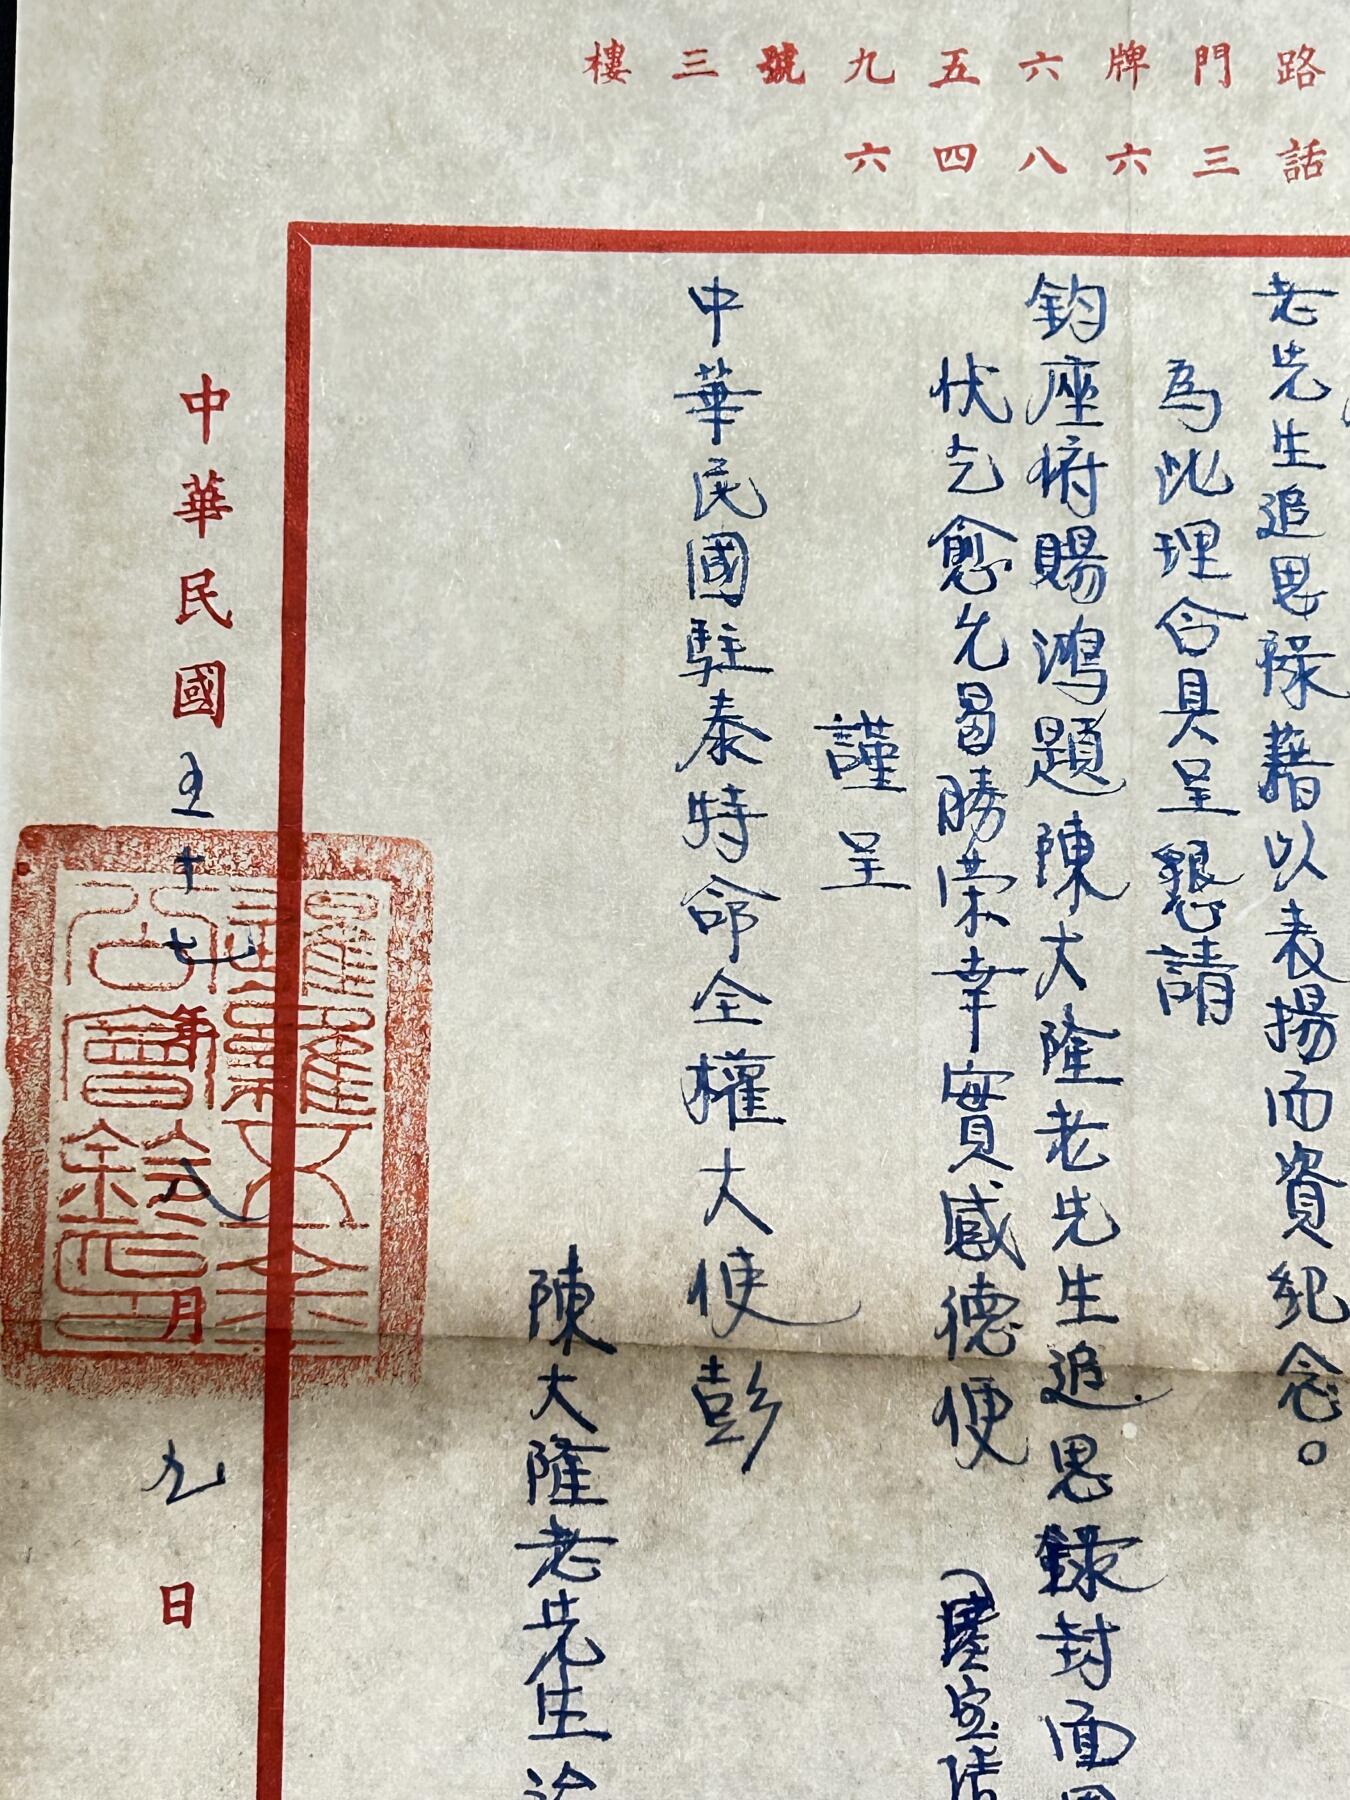 路門牌六五九號三樓
話三六八四六
老先生追思錄藉以表揚而資紀念。
為此理合具呈懇請
鈞座俯賜鴻題陳大隆老先生追思錄封面
伏乞愈允曷勝榮幸實感德便
謹呈
中華民國駐泰特命全權大使彭
陳大隆老先生治
中華民國五十七年八月九日
暹羅
公會鈐記